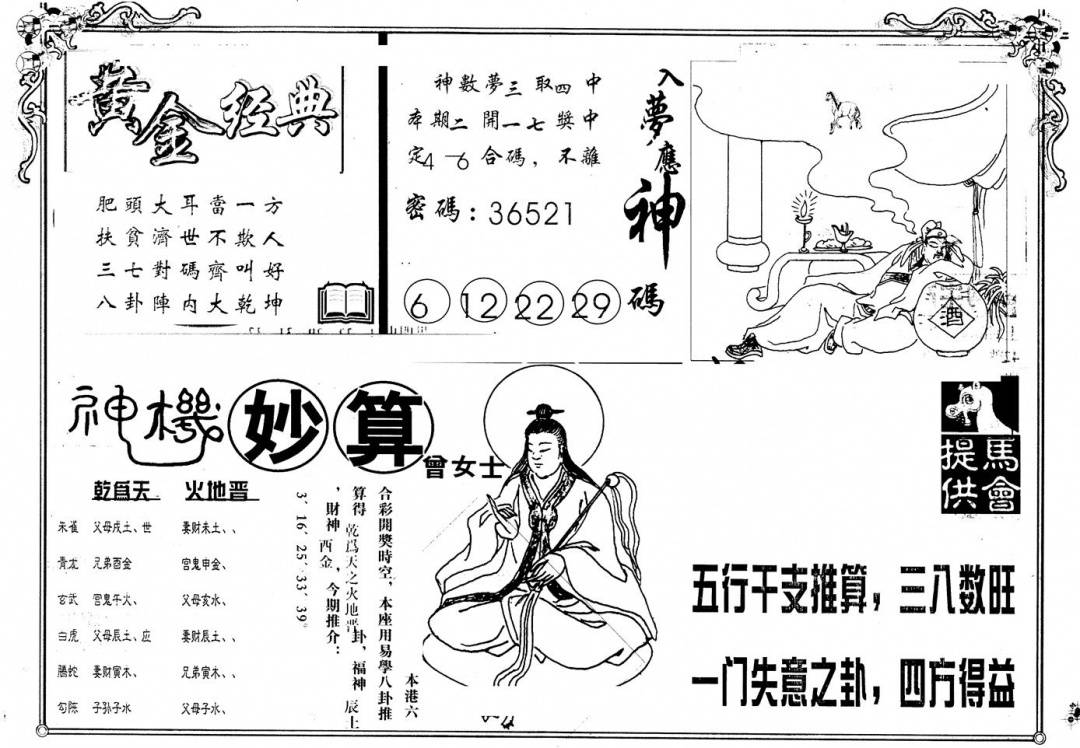 黄金经典
肥頭大耳當一方
扶貧濟世不欺人
三七對碼齊叫好
八卦陣内大乾坤
神數夢三取四中
本期二開一七獎中
定4—6合碼，不離
密碼：36521
6 12 22 29
入夢應神碼
酒
神機妙算
曾女士
馬會提供
乾爲天 火地晋
朱雀 父母戌土、世 妻財未土、、
青龙 兄弟酉金 官鬼申金、
玄武 官鬼午火、 父母亥水、
白虎 父母辰土、应 妻財辰土、、
腾蛇 妻財寅木、 兄弟寅木、、
勾陈 子孙子水 父母子水、
本港六
合彩開獎時空，本座用易學八卦推
算得 乾爲天之火地晋卦，福神 辰土
，財神 酉金，今期推介：
3’ 16’ 25’ 33’ 39。
五行干支推算，三八数旺
一门失意之卦，四方得益